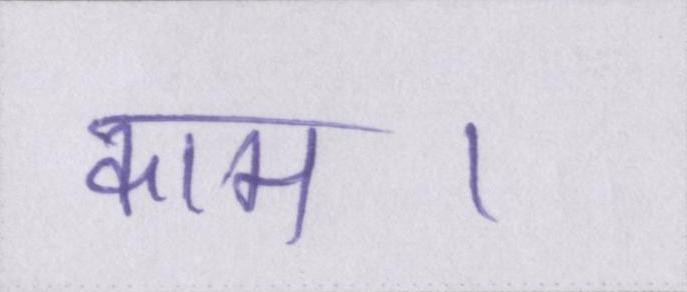 काम ।